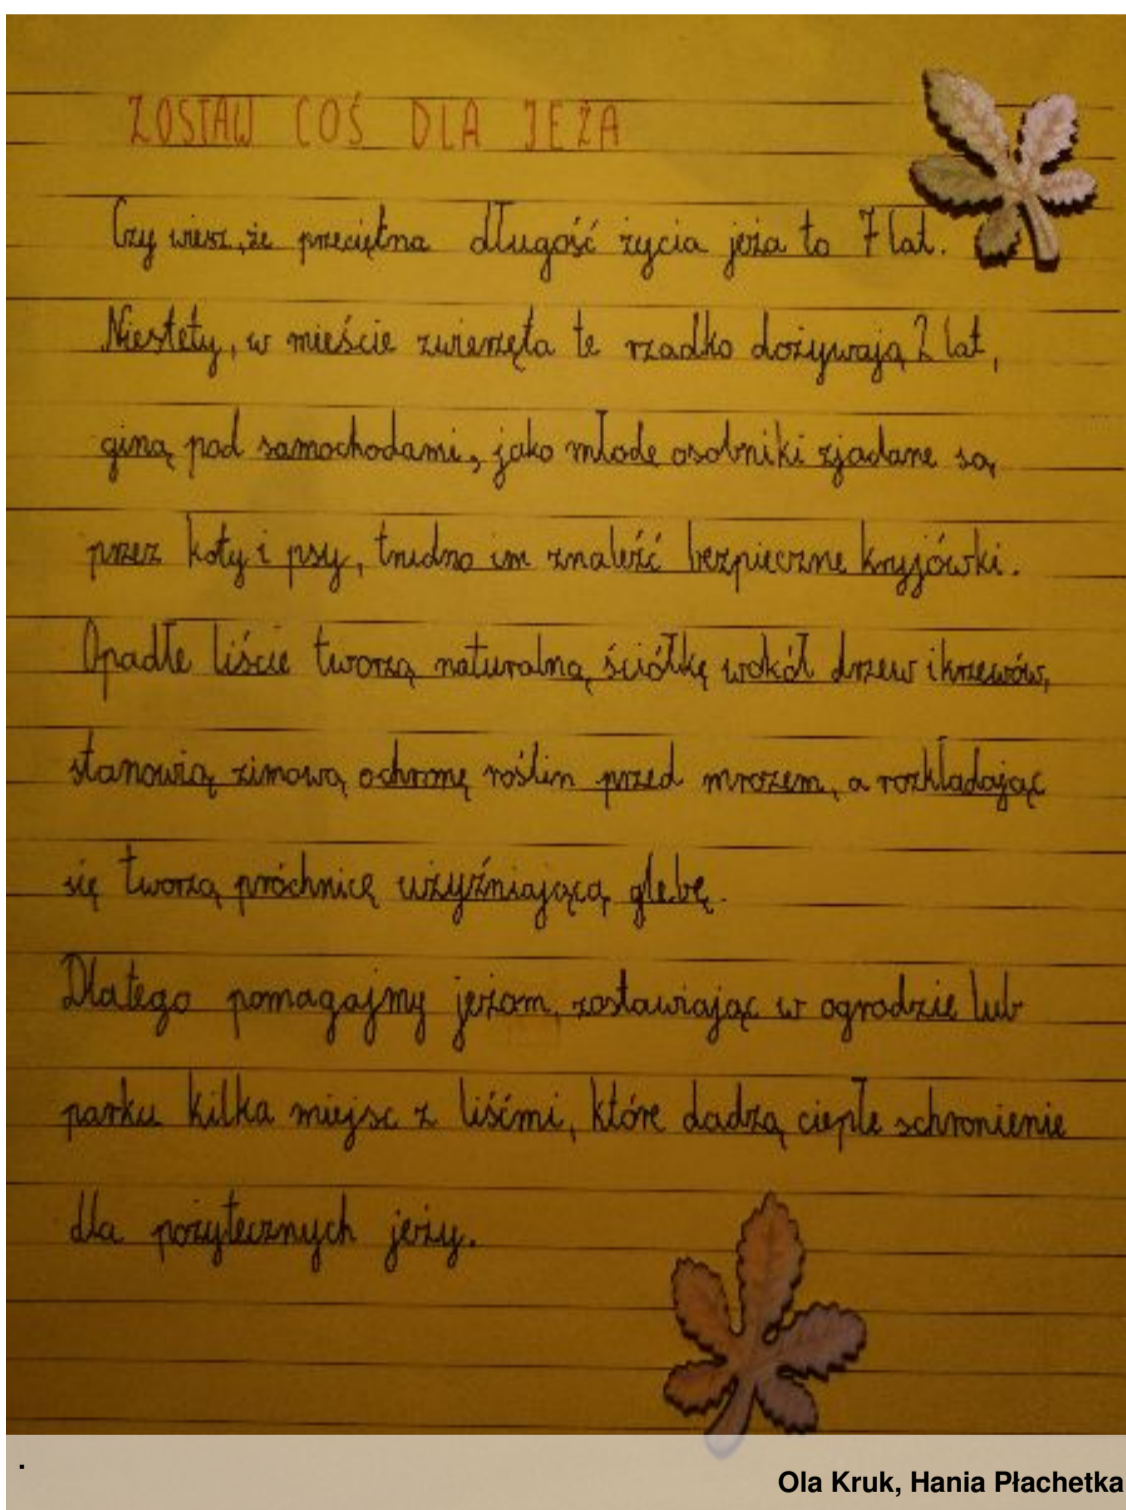 ZOSTAW COŚ DLA JEŻA
Czy wiesz, że przeciętna długość życia jeża to 7 lat.
Niestety, w mieście zwierzęta te rzadko dożywają 2 lat,
giną pod samochodami, jako młode osobniki zjadane są
przez koty i psy, trudno im znaleźć bezpieczne kryjówki.
Opadłe liście tworzą naturalną ściółkę wokół drzew i krzewów,
stanowią zimową ochronę roślin przed mrozem, a rozkładając
się tworzą próchnicę użyźniającą glebę.
Dlatego pomagajmy jeżom, zostawiając w ogrodzie lub
parku kilka miejsc z liśćmi, które dadzą ciepłe schronienie
dla pożytecznych jeży.
.
Ola Kruk, Hania Płachetka